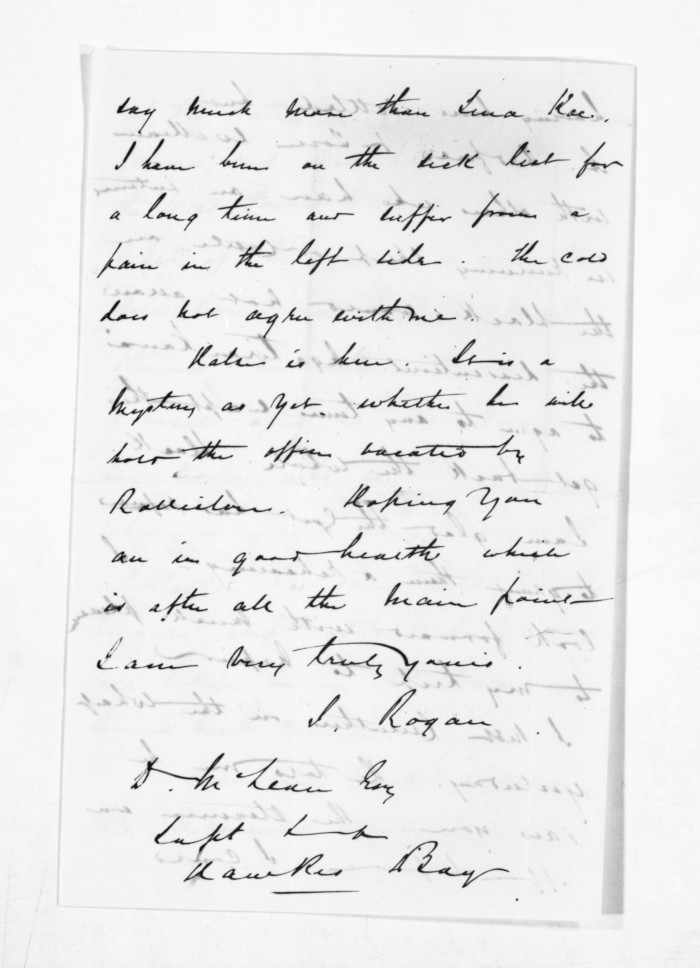 say much more than Tena Koe.
I have been on the sick list for
a long time and suffer from a
pain in the left side. The cold
does not agree with me.
Halse is here. It is a
mystery as yet whether he will
hold the office vacated by
Rolleston. Hoping you
are in good health which
is after all the main point
I am very truly yours.
J. Rogan
D. McLean Esq
Supt
Hawkes Bay